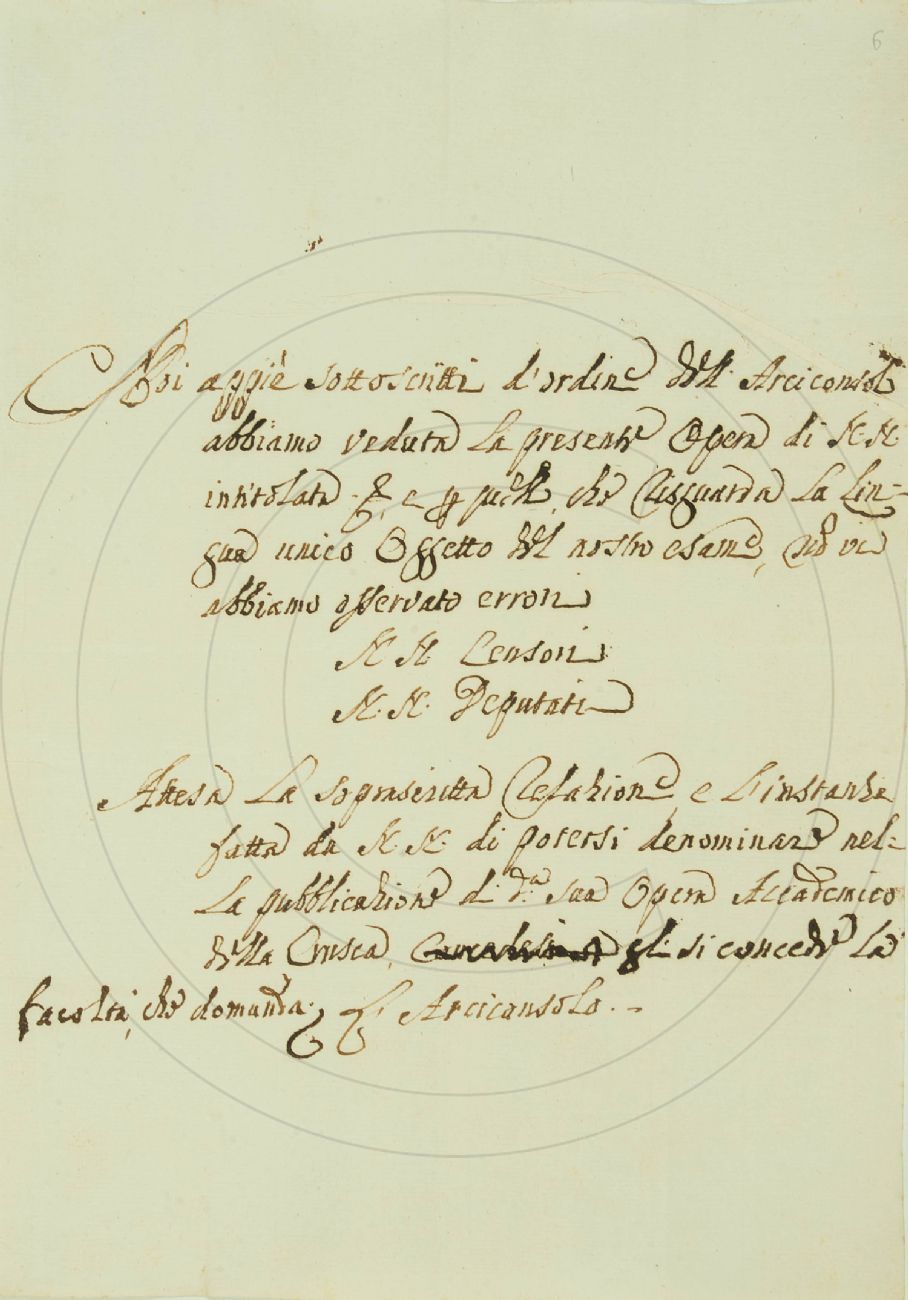 6
Noi appiè sottoscritti d'ordine dell' Arciconsolo
abbiamo veduta la presente Opera di N N
intitolata &, e p quello, che risguarda la Lin=
gua unico Oggetto del nostro esame, non vi
abbiamo osservato errori
N. N. Censori
N. N. Deputati
Attesa la soprascritta Relazione, e l'instanza
fatta da N. N. di potersi denominare nel=
la pubblicazione di d.ª sua Opera Accademico
della Crusca, gli si concede la
facoltà, che domanda. Arciconsolo. -